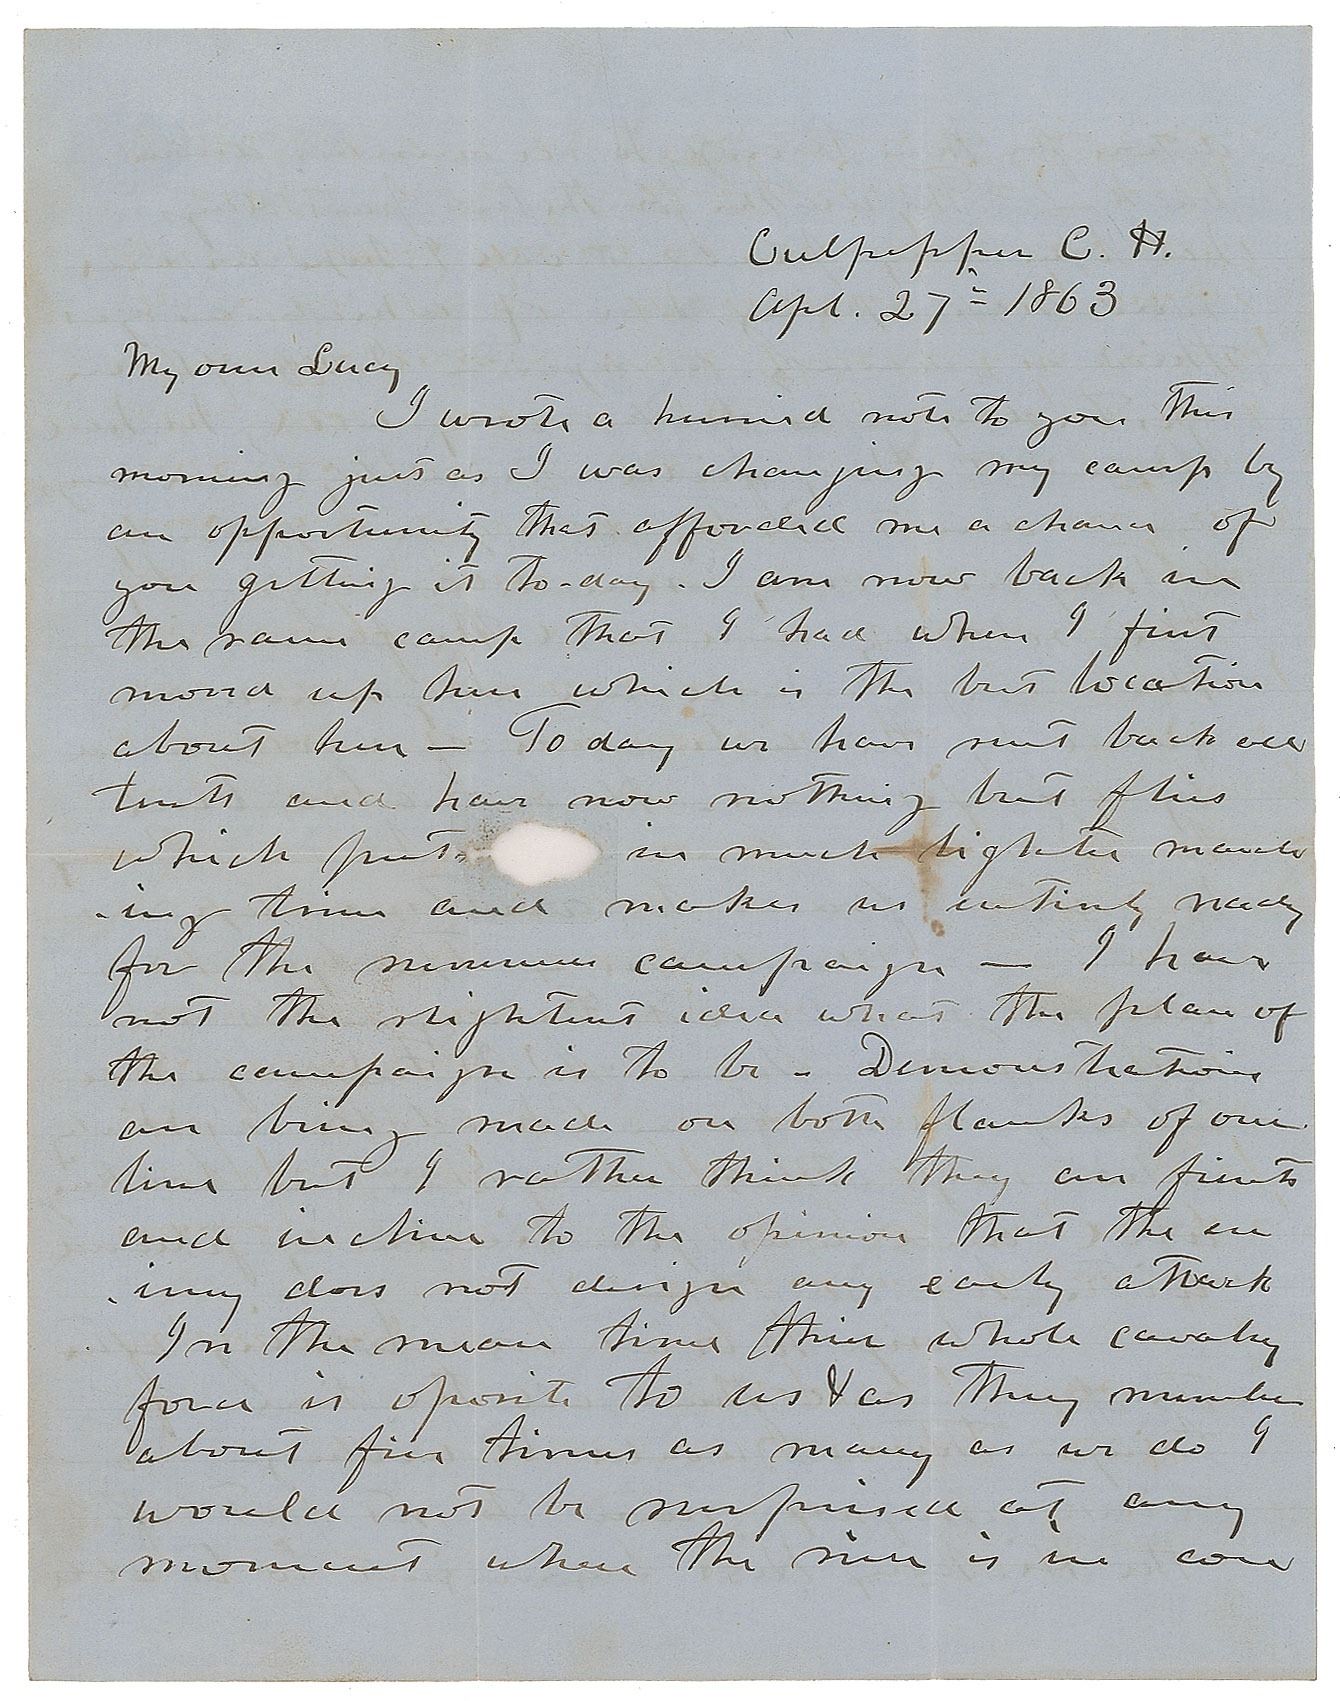 Culpepper C. H.
Apl. 27th 1863
My own Lucy
I wrote a hurried note to you this
morning just as I was changing my camp by
an opportunity that afforded me a chance of
you getting it to-day. I am now back in
the same camp that I had when I first
moved up here which is the best location
about here — To day we have sent back all
tents and have now nothing but flies
which puts in much lighter march
-ing trim and makes us entirely ready
for the summer campaign — I have
not the slightest idea what the plan of
the campaign is to be - Demonstrations
are being made on both flanks of our
line but I rather think they are feints
and incline to the opinion that the en
-imy does not design any early attack
In the mean time thier whole cavalry
force is oposite to us & as they number
about five times as many as we do I
would not be surprised at any
moment when the river is in con